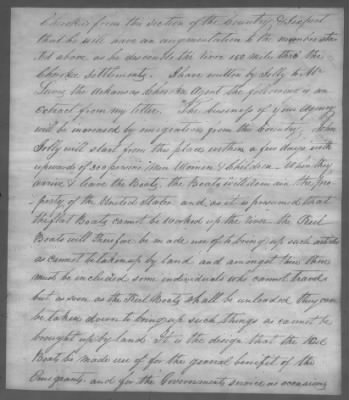 Cherokees from this section of the Country & I expect
that he will have an augmentation to the number sta-
ted above as he descends the river 150 mile thro' the
Cherokee Settlements. I have written by Jolly to Mr
Lewis the Arkansas Cherokee Agent the following is an
extract from my letter. "The business of your Agency
will be increased by emigration from this Country, John
Jolly will start from this place within a few days with
upwards of 300 persons Men Women & Children — When they
arrive & leave the Boats, the Boats will still remain the pro-
perty of the United States and as it is presumed that
the flat Boats cannot be worked up the river the Keel
Boats will therefore be made use of to bring up such articles
as cannot be taken up by land and amongst these there
must be included some individuals who cannot travel
but as soon as the Keel Boats shall be unloaded they can
be taken down to bring up such things as cannot be
brought up by land It is the design that the Keel
Boats be made use of for the general benefit of the
Emigrants and for the Governments service as occasion